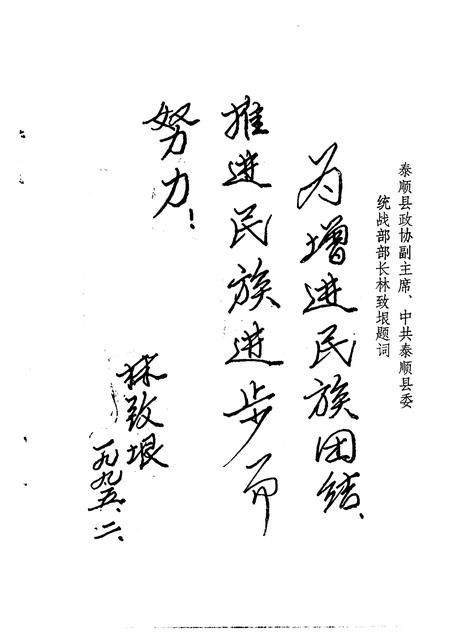 泰顺县政协副主席、中共泰顺县委
统战部部长林致垠题词
为增进民族团结、
推进民族进步而
努力！
林致垠
一九九五、二、